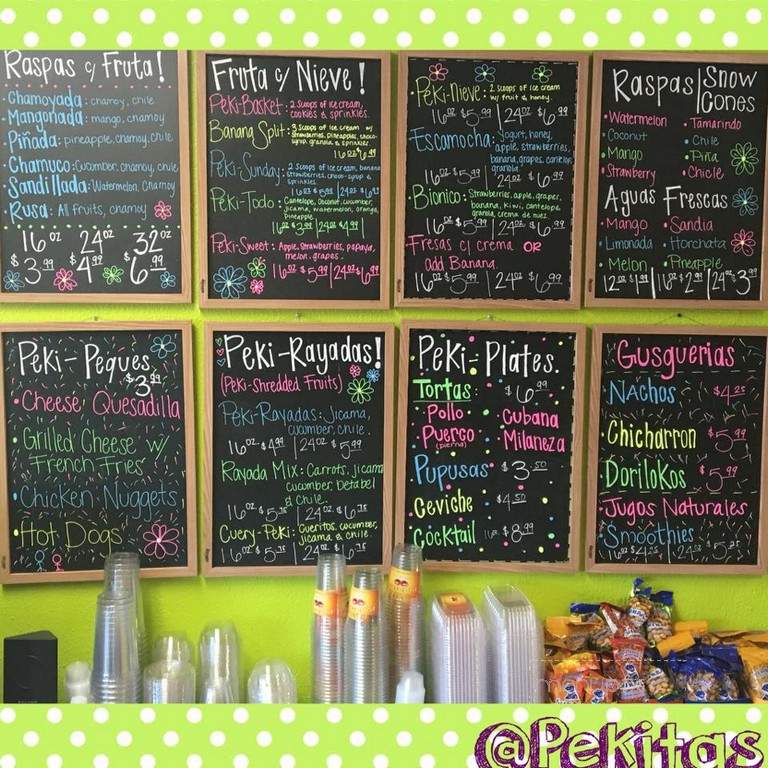 Raspas c/ Fruta!
Chamoyada: chamoy, chile
Mangonada: mango, chamoy
Piñada: pineapple, chamoy, chile
Chamuco: Cucumber, chamoy, chile
Sandillada: Watermelon, Chamoy
Rusa: All fruits, chamoy
16oz 24oz 32oz
$3.99 $4.99 $6.99
Fruta c/ Nieve!
Peki-Basket: 2 scoops of ice cream,
cookies & sprinkles.
Banana Split: 3 scoops of ice cream w/
strawberries, pineapples, choco-
syrup, granola & sprinkles.
16oz $6.99
Peki-Sunday: 2 scoops of ice cream, banana
strawberries, choco-syrup &
sprinkles.
16oz $5.99 | 24oz $6.99
Peki-Todo: Cantelope, Coconut, cucumber,
jicama, watermelon, orange,
Pineapple
16oz $3.99 | 24oz $4.99
Peki-Sweet: Apple, Strawberries, papaya,
melon, grapes.
16oz $5.99 | 24oz $6.99
Peki-Nieve: 2 scoops of ice cream
w/ fruit & honey.
16oz $5.99 | 24oz $6.99
Escamocha: Yogurt, honey,
apple, strawberries,
banana, grapes, cantelope
granola
16oz $5.99 | 24oz $6.99
Bionico: Strawberries, apple, grapes,
banana, kiwi, cantelope
granola, crema de nuez
16oz $5.99 | 24oz $6.99
Fresas c/ crema OR
add Banana
16oz $5.99 | 24oz $6.99
Raspas | Snow
Cones
• Watermelon • Tamarindo
• Coconut • Chile
• Mango • Piña
• Strawberry • Chicle
Aguas Frescas
• Mango • Sandia
• Limonada • Horchata
• Melon • Pineapple
12oz $1.99 | 16oz $2.99 | 24oz $3.99
Peki-Peques
$3.99
• Cheese Quesadilla
• Grilled Cheese w/
French Fries
• Chicken Nuggets
• Hot Dogs
Peki-Rayadas!
(Peki-Shredded Fruits)
Peki-Rayadas: Jicama,
cucumber, chile.
16oz $4.99 | 24oz $5.99
Rayada Mix: Carrots, jicama
Cucumber, Betabel
& Chile.
16oz $5.75 | 24oz $6.75
Cuery-Peki: Cueritos, cucumber,
jicama & chile.
16oz $5.75 | 24oz $6.75
Peki-Plates.
Tortas: $6.99
• Pollo • Cubana
• Puerco • Milaneza
(pierna)
Pupusas $3.50
Ceviche $4.50
Cocktail 16oz $8.99
Gusguerias
• Nachos $4.25
• Chicharron $5.99
• Dorilokos $5.99
• Jugos Naturales
• Smoothies
16oz $4.25 | 24oz $5.25
@Pekitas